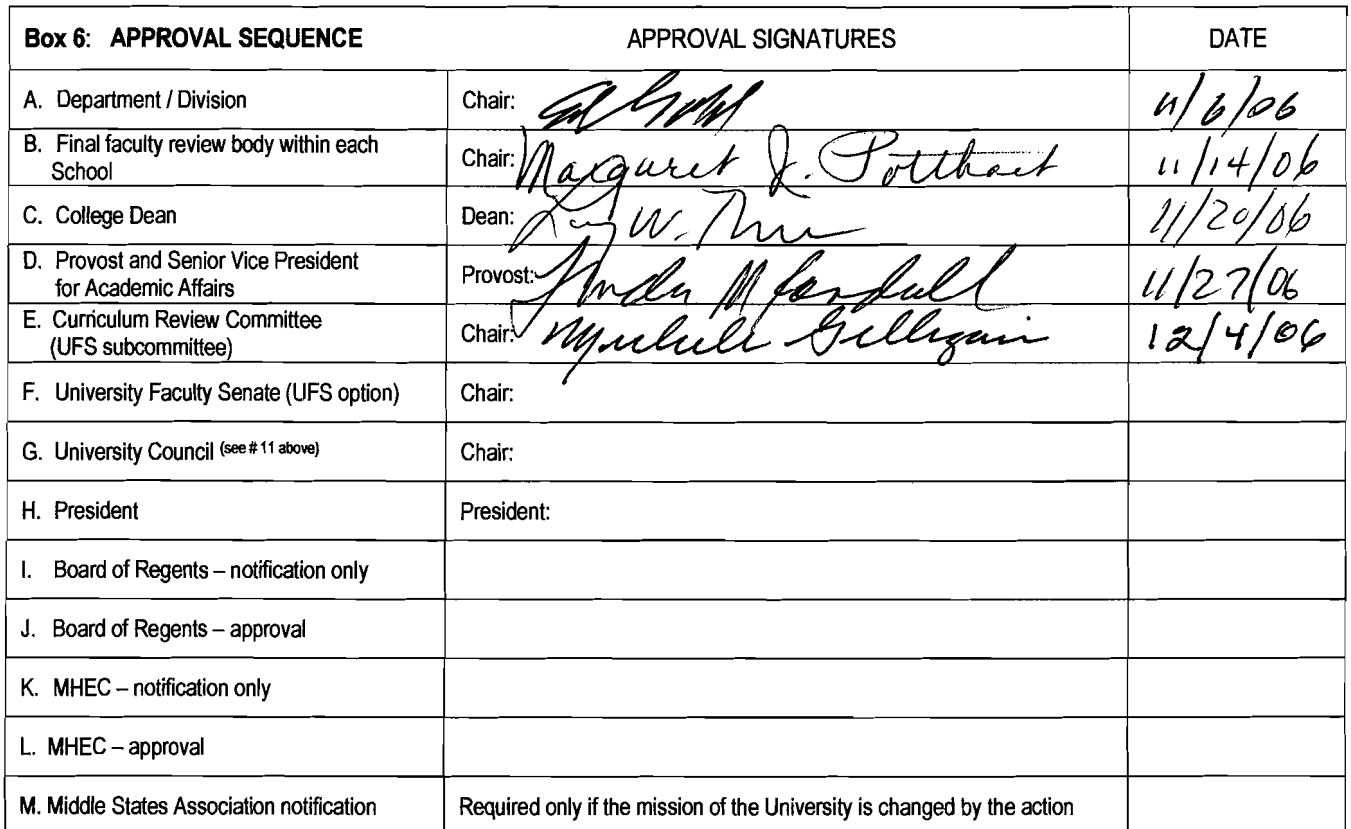 Box 6: APPROVAL SEQUENCE APPROVAL SIGNATURES DATE
A. Department / Division Chair: 11/6/06
B. Final faculty review body within each
School Chair: Margaret J. Potthast 11/14/06
C. College Dean Dean: W. 11/20/06
D. Provost and Senior Vice President
for Academic Affairs Provost: M 11/27/06
E. Curriculum Review Committee
(UFS subcommittee) Chair: Gilligan 12/4/06
F. University Faculty Senate (UFS option) Chair:
G. University Council (see # 11 above) Chair:
H. President President:
I. Board of Regents – notification only
J. Board of Regents – approval
K. MHEC – notification only
L. MHEC – approval
M. Middle States Association notification Required only if the mission of the University is changed by the action